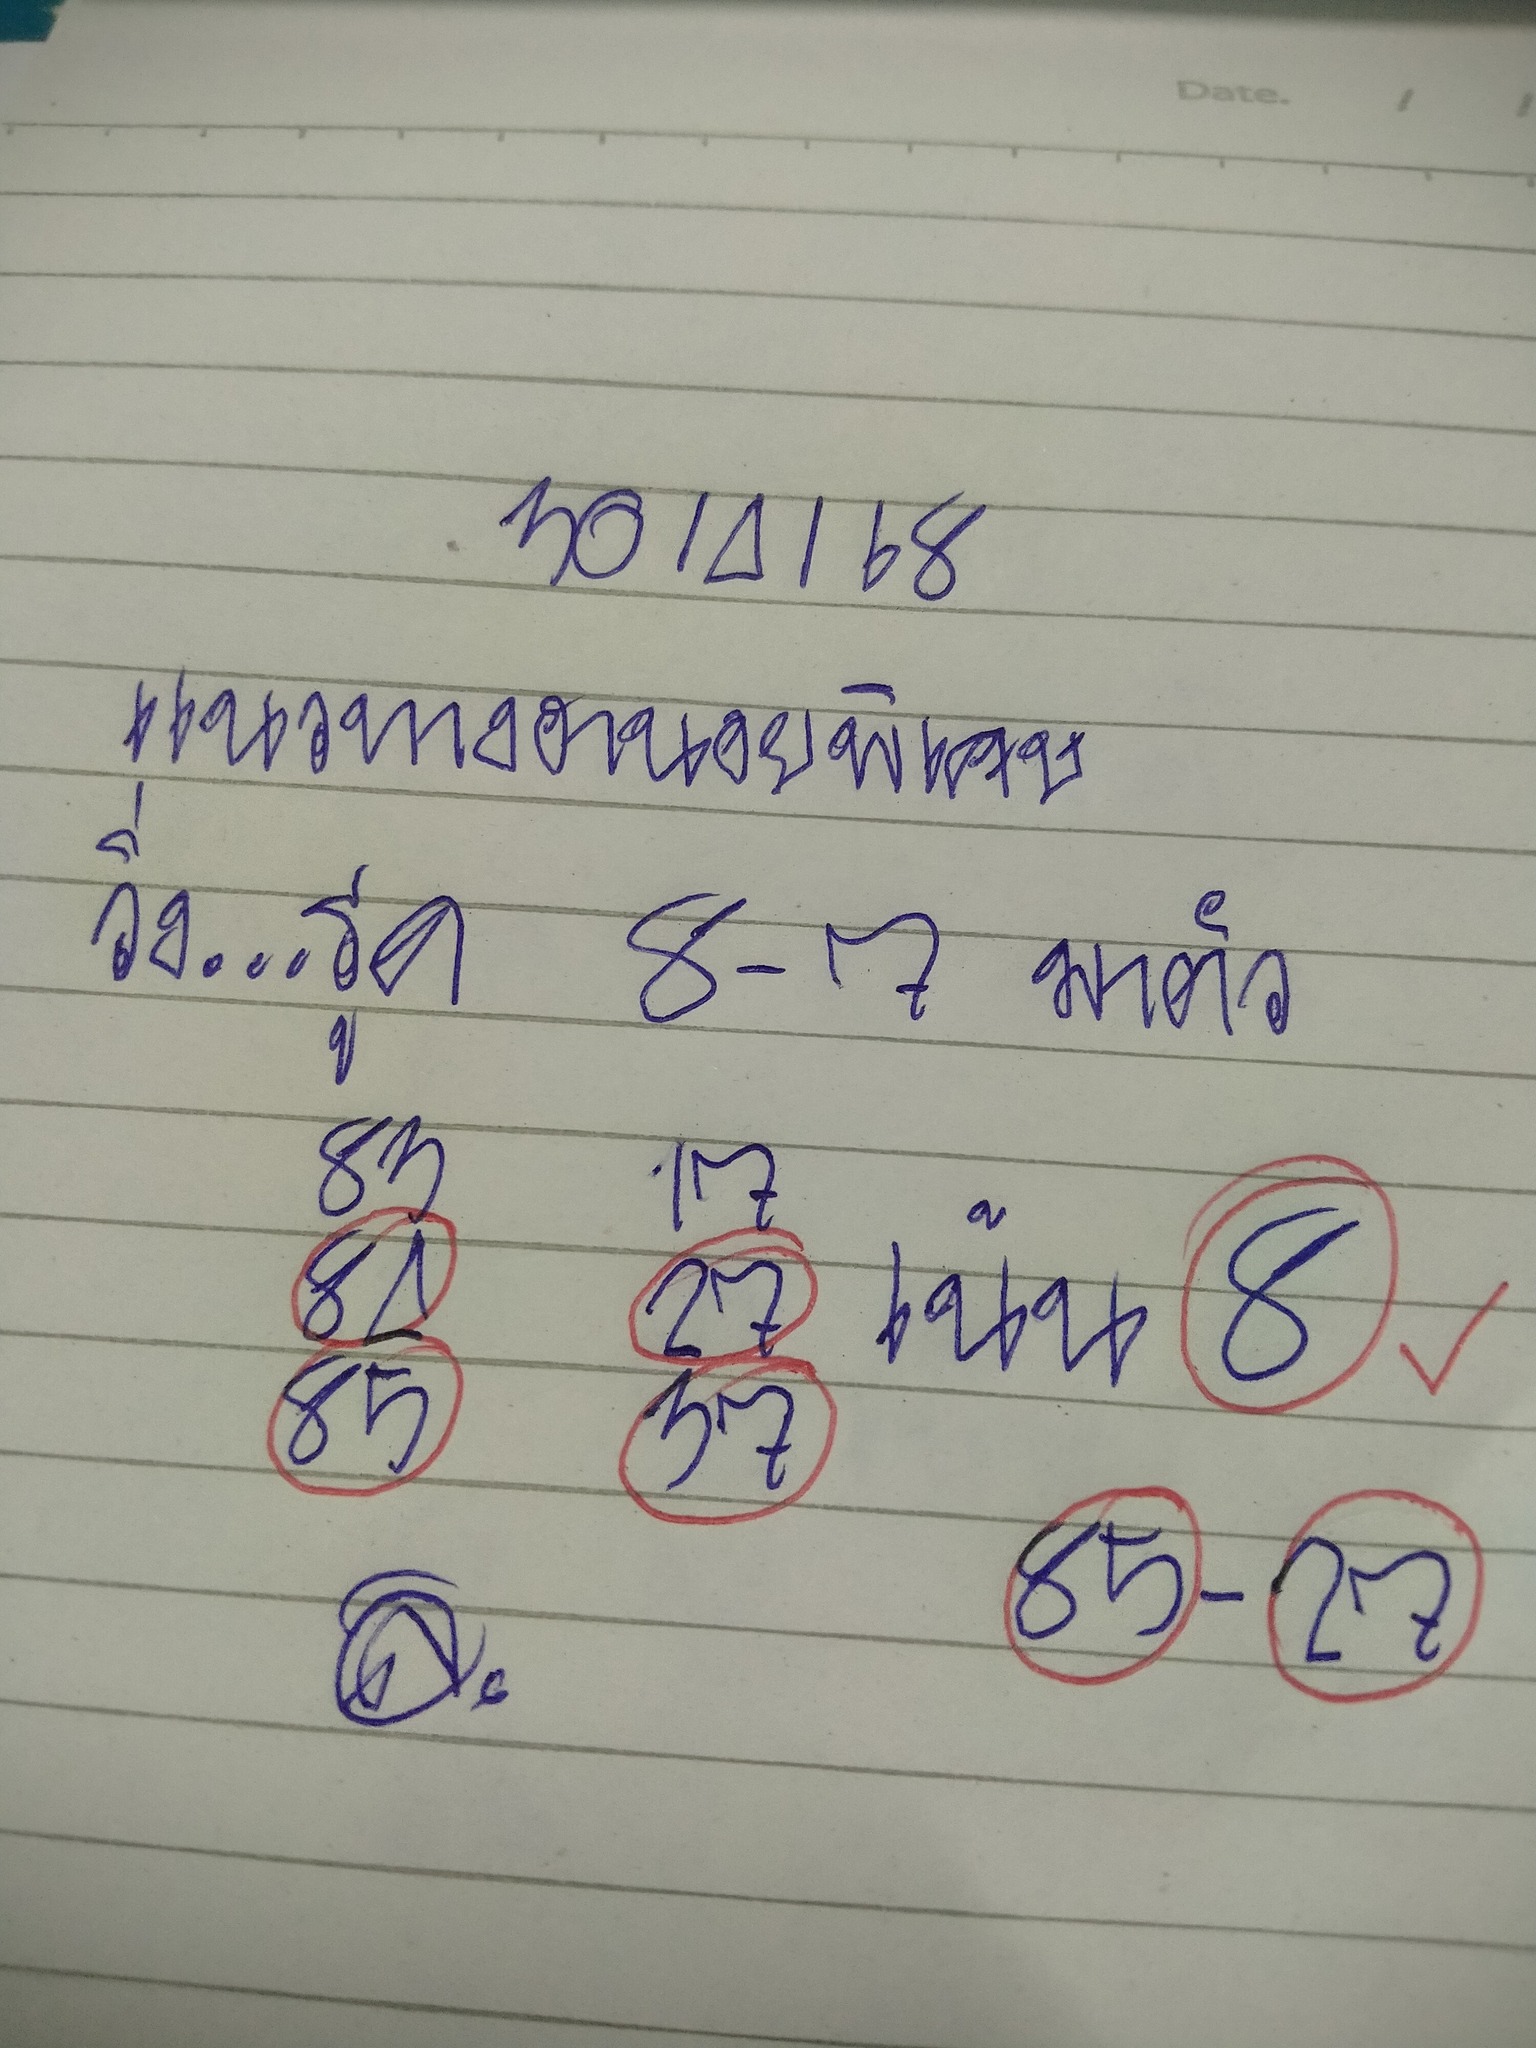 Date. / /
30/1/68
แนวทางฮานอยพิเศษ
วิ่ง...รูด 8-7 มาตัว
83 17
81 27 เน้น 8
85 37
85-27